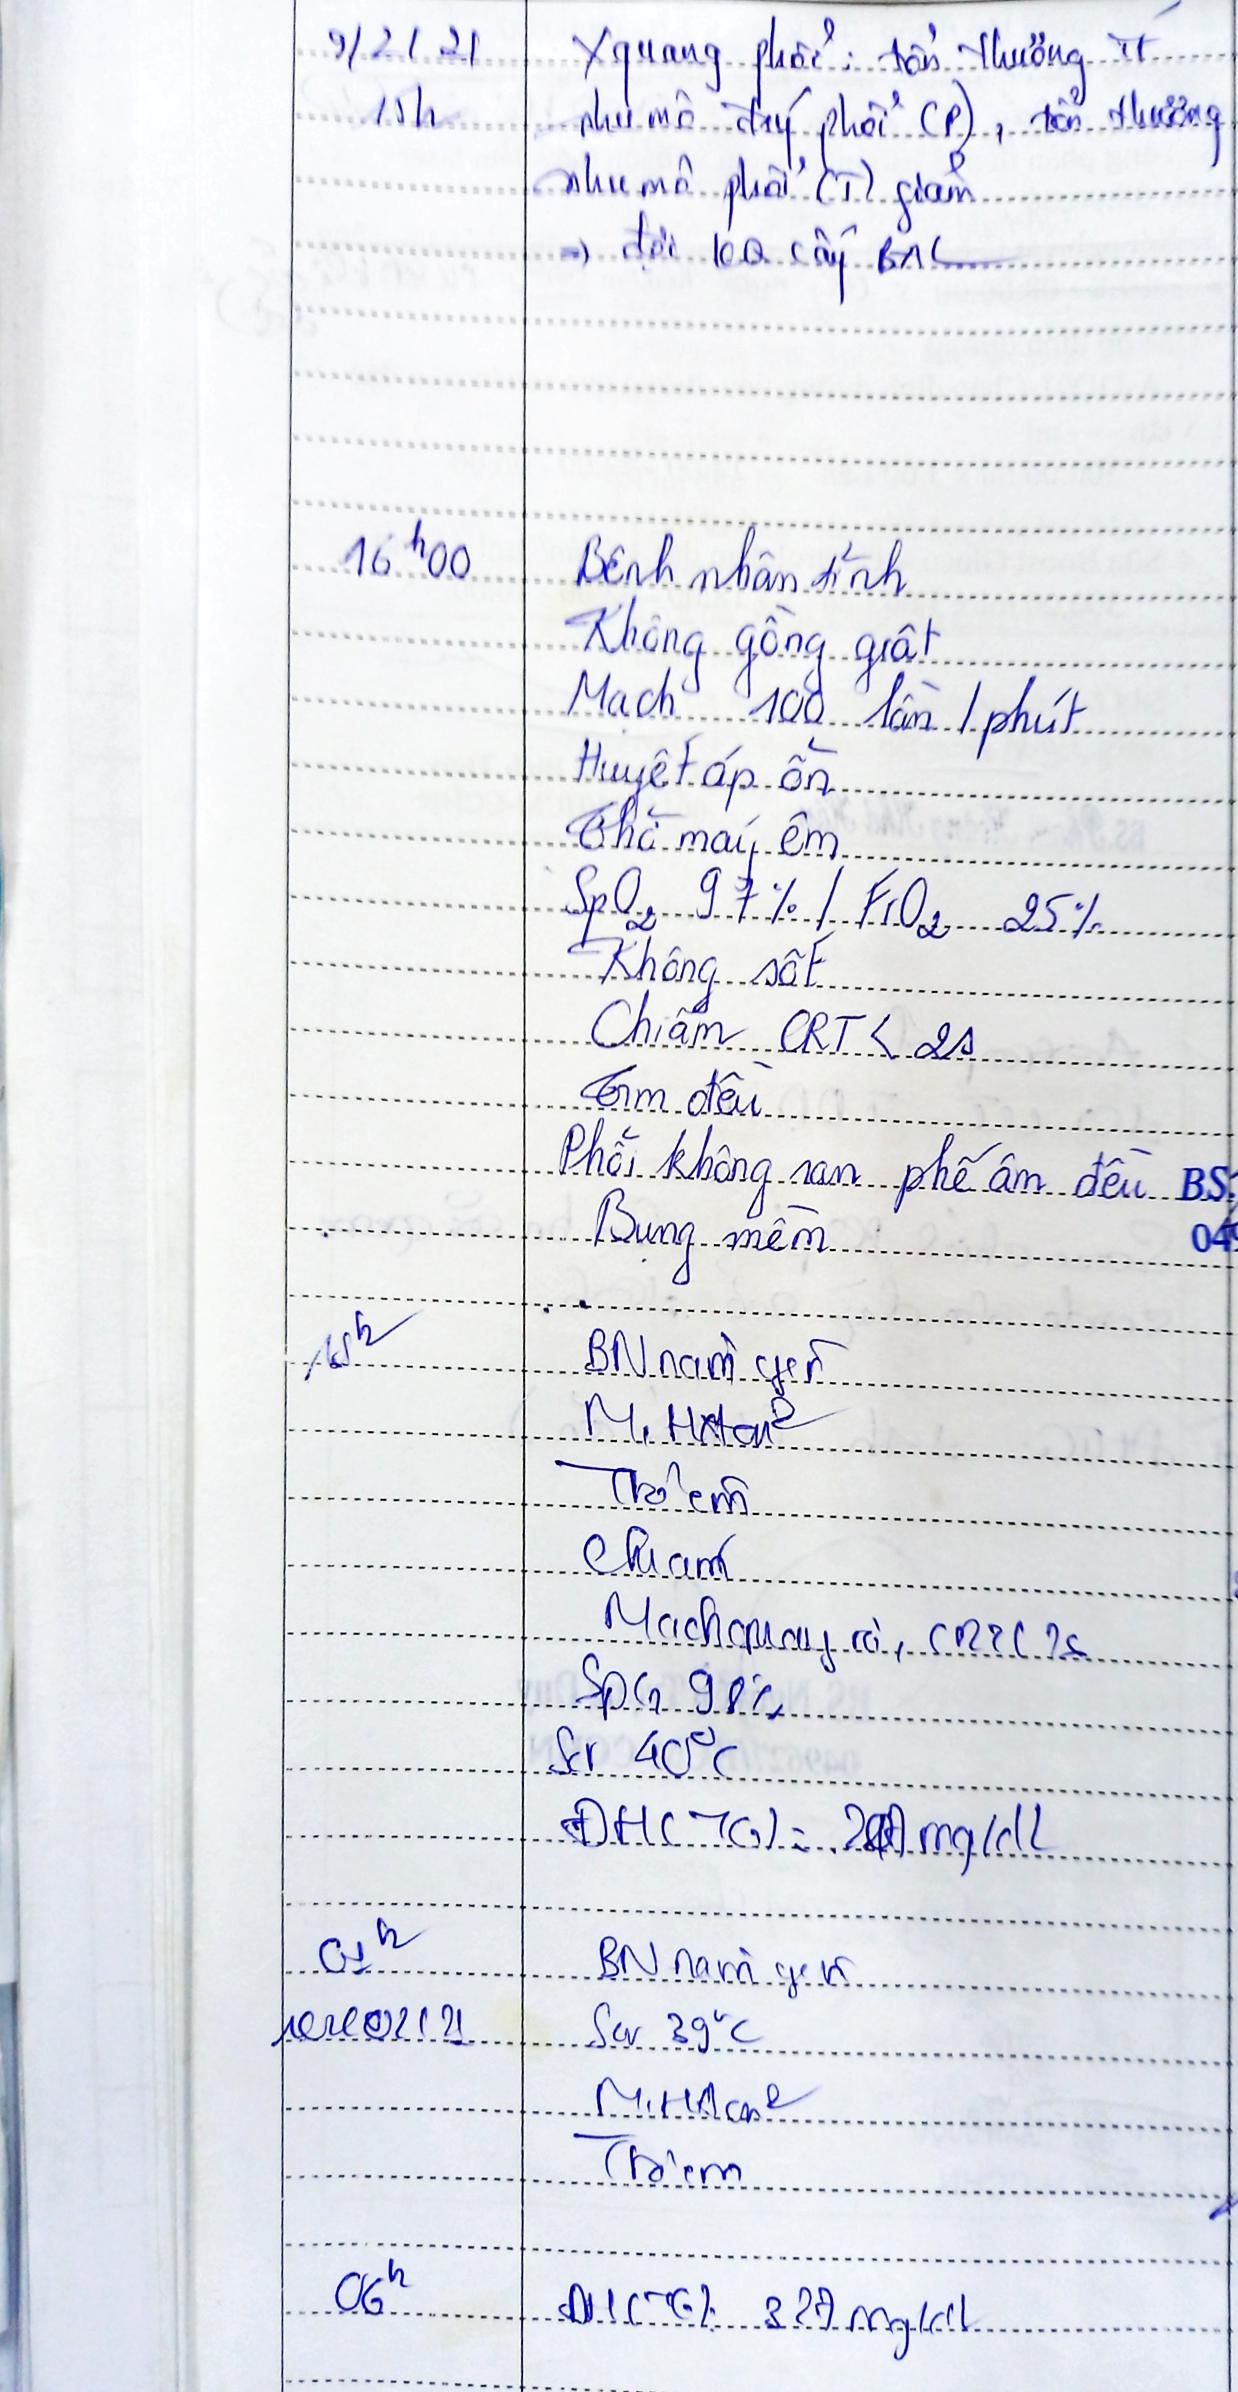 9/2/21 Xquang phổi: tổn thương ít
15h nhu mô đáy phổi (P), tổn thương
nhu mô phổi (T) giảm
=> đợi KQ cấy BAL
16h00 Bệnh nhân tỉnh
Không gồng giật
Mạch 100 lần/phút
Huyết áp ổn
Thở máy êm
SpO2 97%/FiO2 25%
Không sốt
Chi ấm CRT < 2s
Tim đều
Phổi không ran phế âm đều BS
Bụng mềm 049
BN nằm yên
M, HA ổn
Thở êm
Chi ấm
Mạch quay rõ, CRT < 2s
SpO2 98%
Sốt 40°C
ĐH (TG) = mg/dl
01h BN nằm yên
10/02/21 Sốt 39°C
M, HA ổn
Thở êm
06h ĐH (TG): 327 mg/dl